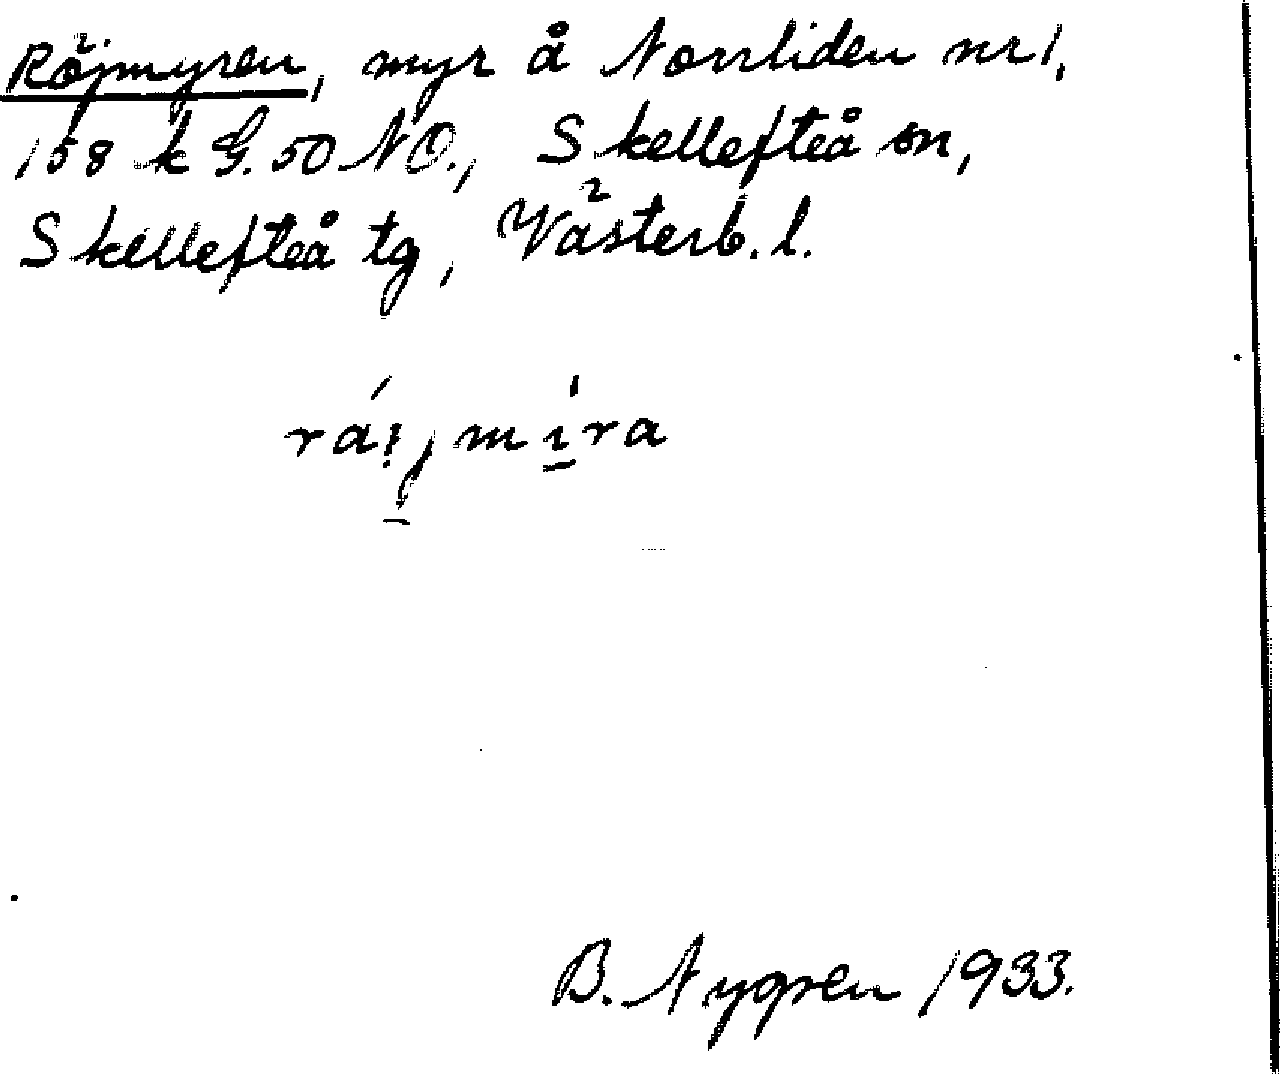 Röjmyren, myr å Norrliden nr 1,
158 k G. 50 NO., Skellefteå sn,
Skellefteå tg, Västerb. l.
B. Nygren 1933.